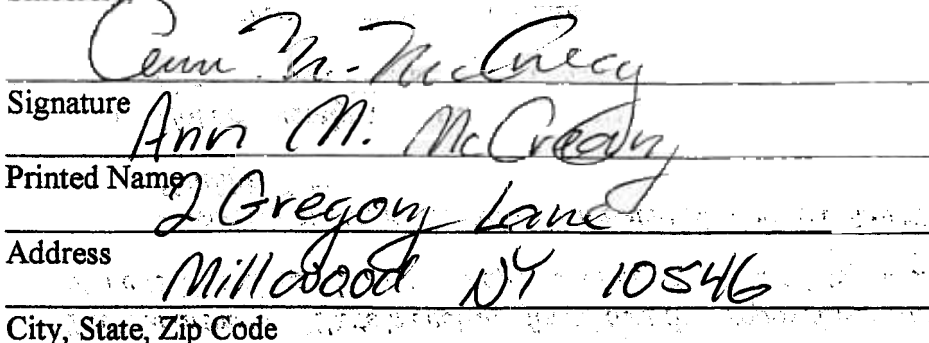 Ann M. McCreedy
Signature
Ann M. McCreedy
Printed Name
2 Gregory Lane
Address
Millwood NY 10546
City, State, Zip Code